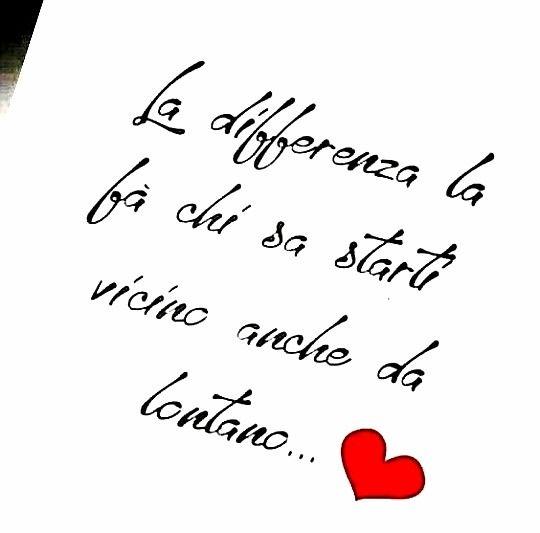 La differenza la
fà chi sa starti
vicino anche da
lontano...